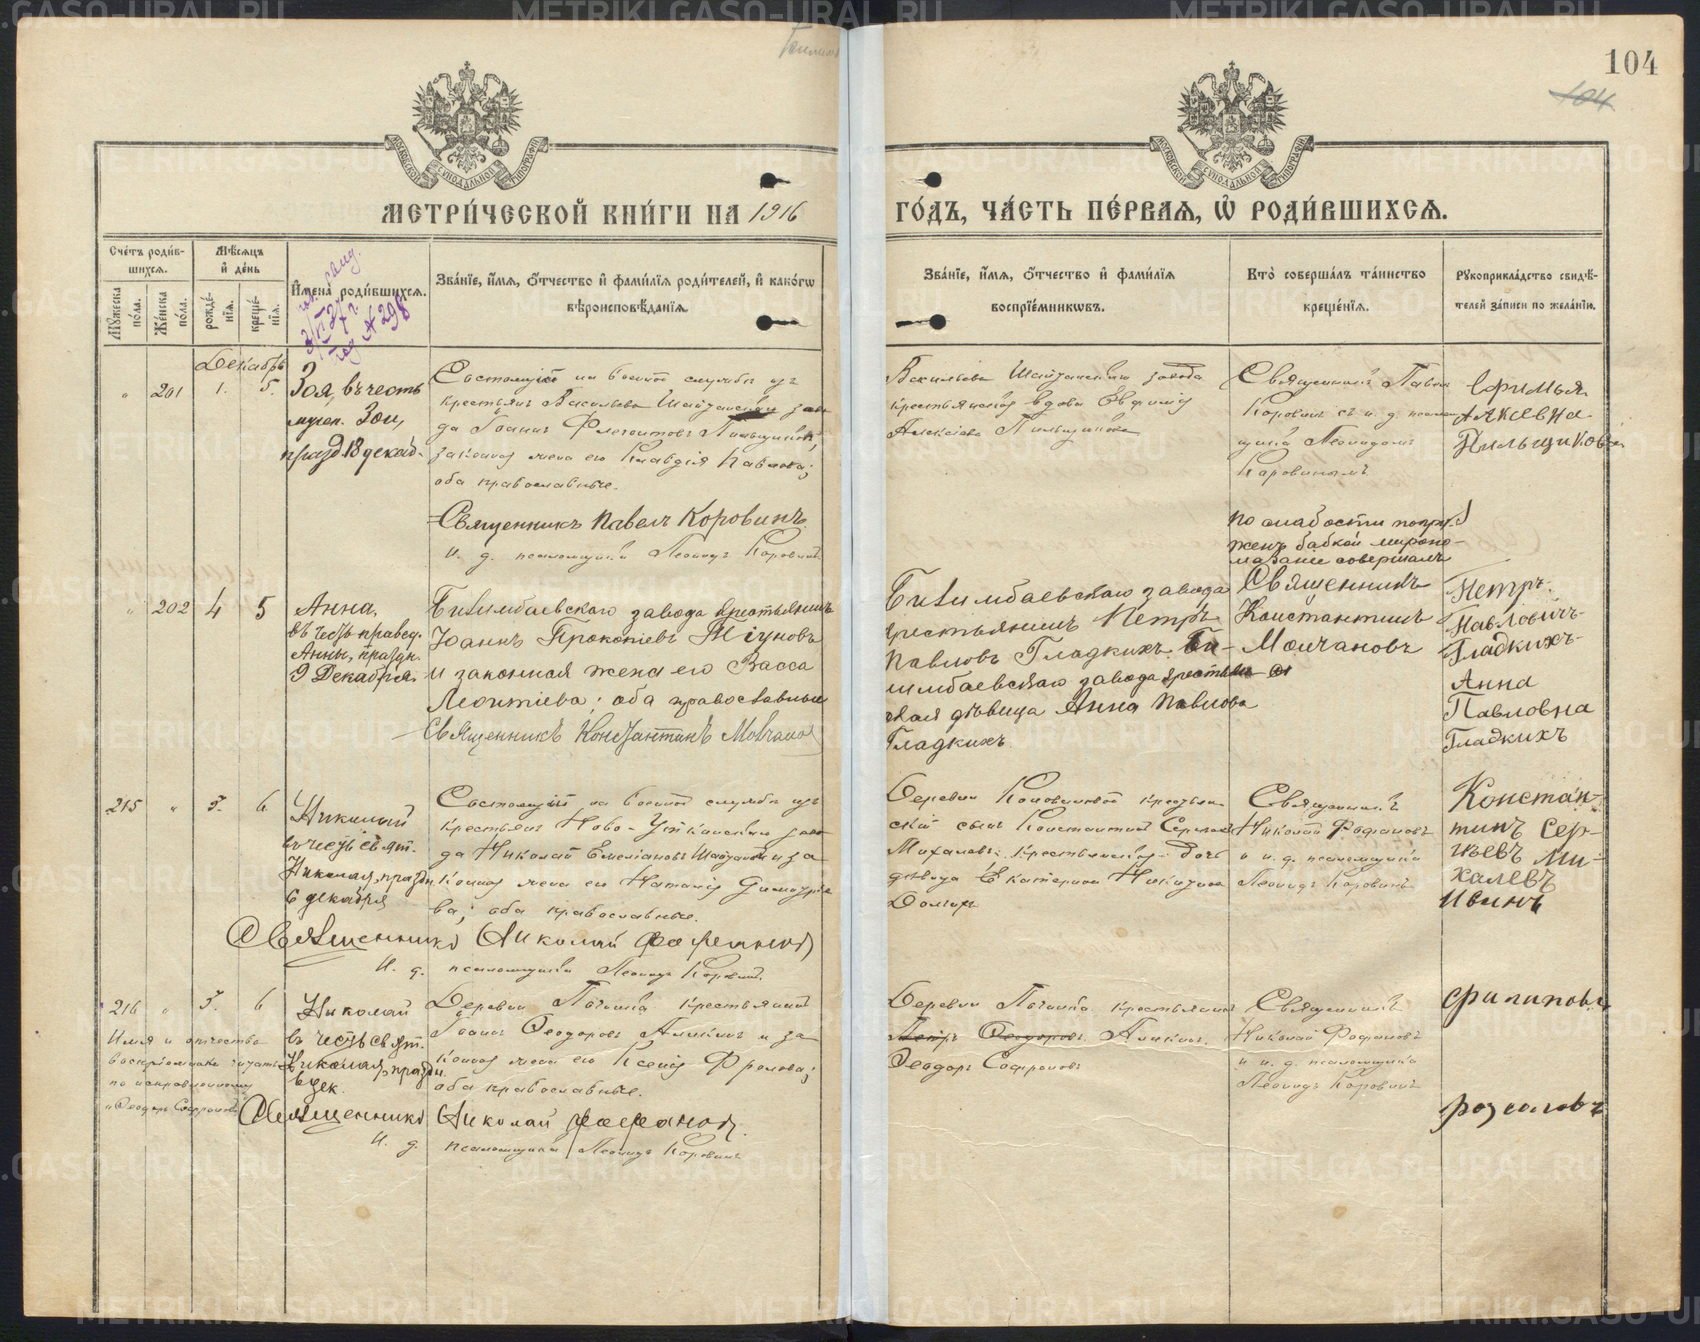 104
104
МОСКОВСКОЙ СѴНОДАЛЬНОЙ ТИПОГРАФІИ
МОСКОВСКОЙ СѴНОДАЛЬНОЙ ТИПОГРАФІИ
МЕТРИ́ЧЕСКОЙ КНИ́ГИ НА 1916
ГО́ДЪ, ЧА́СТЬ ПЕ́РВАЯ, Ѡ РОДИ́ВШИХСЯ.
Сче́тъ роди́в-
шихся.
Му́жеска по́ла.
Же́нска по́ла.
Мѣ́сяцъ
и҆ де́нь
рожде́-
нїя.
креще́-
нїя.
И҆мена̀ роди́вшихся.
Зва́нїе, и҆́мя, ѻ҆́тчество и҆ фамѝлїя роди́телей, и҆ како́гѡ
вѣроисповѣ́данїя.
Зва́нїе, и҆́мя, ѻ҆́тчество и҆ фамѝлїя
воспрїе́мникѡвъ.
Кто̀ соверша́лъ та́инство
креще́нїя.
Рꙋкоприкла́дство свидѣ́-
телей за́писи по жела́нїю.
№ 298
Декабрь
" 201 1. 5.
Зоя, въ честь
мучен. Зои,
празд. 18 декаб.
Состоящій на военной службѣ изъ
крестьянъ Васильево Шайтанскаго заво
да Іоаннъ Флегонтовъ Пильщиковъ,
законная жена его Клавдія Павлова;
оба православные.
Священникъ Павелъ Коровинъ.
И. д. псаломщика Леонидъ Коровинъ
Васильево Шайтанскаго завода
крестьянская вдова Евфимія
Алексіева Пильщикова
Священникъ Павелъ
Коровинъ съ и. д. псалом
щика Леонидомъ
Коровинымъ
Ефимья
Алкевна
Пильщикова
" 202 4 5
Анна,
въ честь правед.
Анны, праздн.
9 Декабря.
Билимбаевскаго завода крестьянинъ
Іоаннъ Прокопіевъ Тіуновъ
и законная жена его Васса
Леонтіева; оба православные
Священникъ Константинъ Молчановъ
Билимбаевскаго завода
крестьянинъ Петръ
Павловъ Гладкихъ. Би-
лимбаевскаго завода крестьян
ская дѣвица Анна Павлова
Гладкихъ.
По слабости погру-
женъ бабкой мѵропо-
мазание совершалъ
Священникъ
Константинъ
Молчановъ
Петръ
Павловичъ
Гладкихъ
Анна
Павловна
Гладкихъ
215 " 5. 6
Николай
въ честь свят.
Николая, праздн.
6 декабря
Состоящій на военной службѣ изъ
крестьянъ Ново-Уткинскаго заво
да Николай Емеліановъ Шайтановъ и за
конная жена его Наталія Димитріе
ва; оба православные.
Священникъ Николай Фофановъ
И. д. псаломщика Леонидъ Коровинъ.
Деревни Коноваловой крестьян
скій сынъ Константинъ Сергіевъ
Михалевъ. Крестьянская дочь
дѣвица Екатерина Никитина
Долгихъ
Священникъ
Николай Фофановъ
и и. д. псаломщика
Леонидъ Коровинъ
Констан-
тинъ Сер-
гѣевъ Ми-
халевъ
216 " 5. 6
Имя и отчество
воспріемника читать
по исправленному
"Ѳеодоръ Софроновъ"
Николай
въ честь свят.
Николая, праздн.
6 дек.
Деревни Починка крестьянинъ
Іоаннъ Ѳеодоровъ Аликинъ и за
конная жена его Ксенія Фролова;
оба православные.
Священникъ Николай Фофановъ.
И. д. псаломщика Леонидъ Коровинъ
Деревни Починка крестьянинъ
Петръ Ѳеодоровъ Аликинъ.
Ѳеодоръ Софроновъ
Священникъ
Николай Фофановъ
и и. д. псаломщика
Леонидъ Коровинъ
METRIKI.GASO-URAL.RU